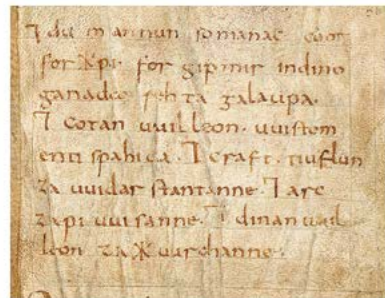 ⁊ du mannun so manac coot
forᚷpi· for gipmir indino
ganada rehta galaupa·
⁊ cotan uuilleon· uuistom
enti spahida· ⁊ craft· tiuflun
za uuidar stantanne· ⁊ arc
zapi uuisanne· ⁊ dinan uuil
leon za ᚷuurchanne·